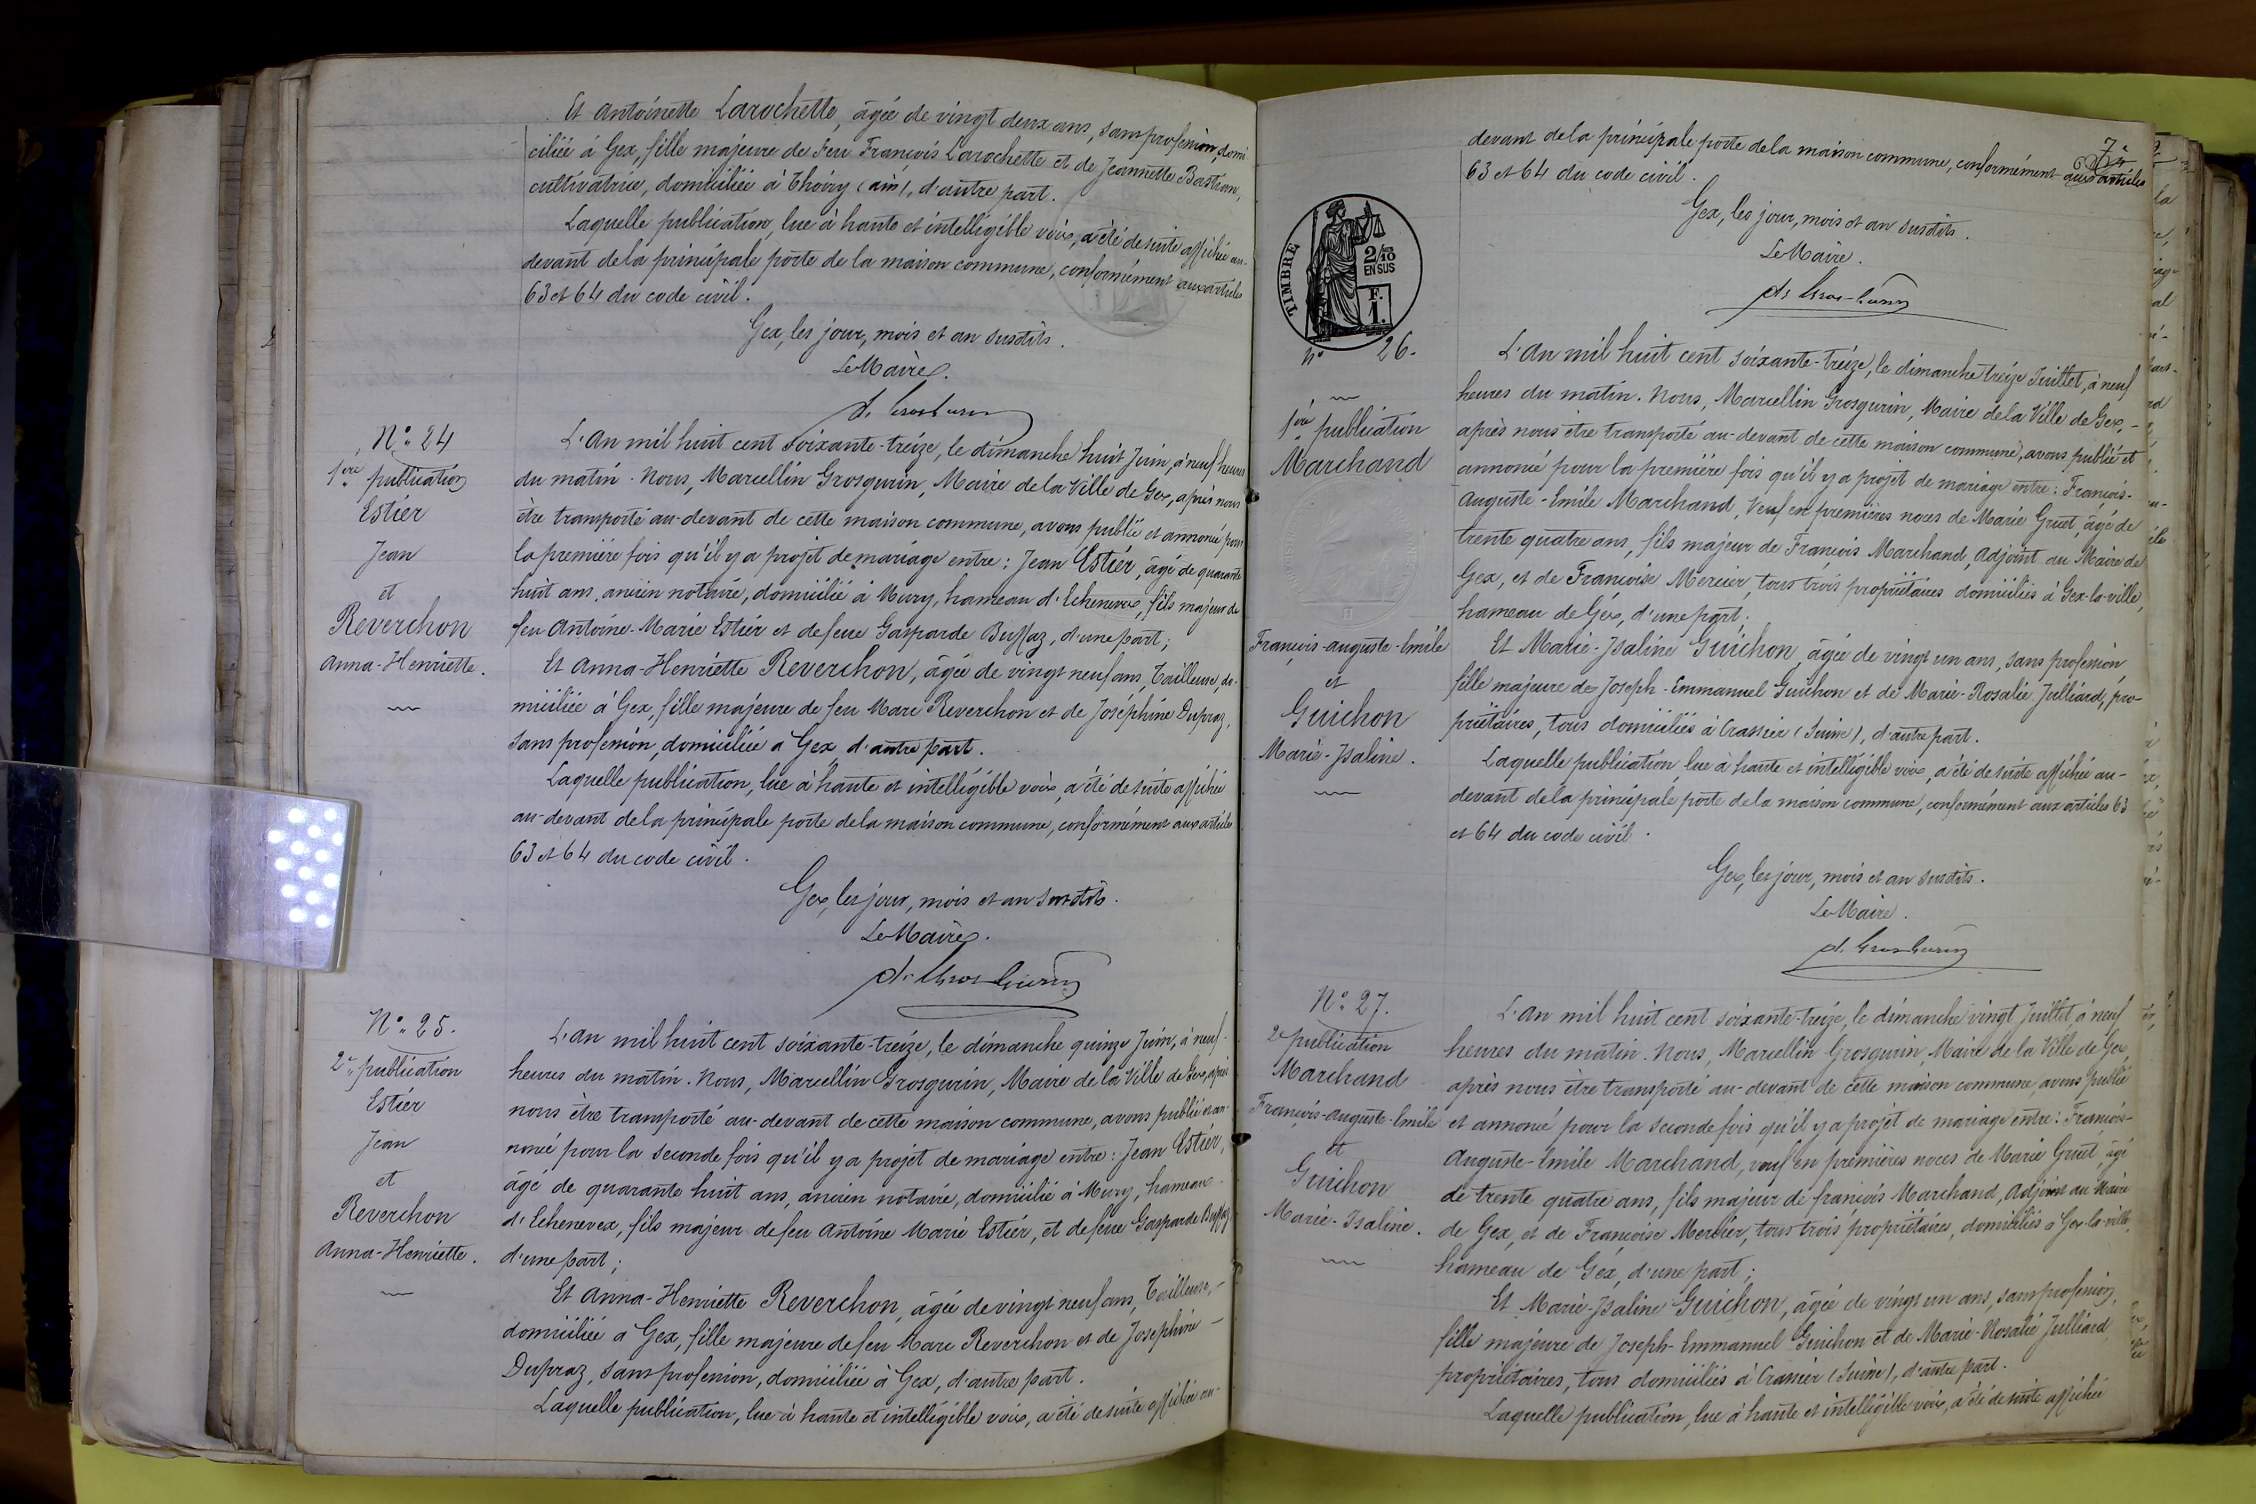 Et Antoinette Larochette, âgée de vingt deux ans, sans profession, domi
ciliée à Gex, fille majeure de feu François Larochette et de Jeannette Bastian,
cultivatrice, domiciliée à Thoiry (ain), d'autre part.
Laquelle publication, lue à haute et intelligible voix, a été de suite affichée au-
devant de la principale porte de la maison commune, conformément aux articles
63 et 64 du code civil.
Gex, les jour, mois et an susdits.
Le Maire.
N° 24
1ère publication
Estier
Jean
et
Reverchon
Anna-Henriette.
L'An mil huit cent soixante-treize, le dimanche huit Juin, à neuf heures
du matin. Nous, Marcellin Grosgurin, Maire de la Ville de Gex, après nous
être transporté au-devant de cette maison commune, avons publié et annoncé pour
la première fois qu'il y a projet de mariage entre: Jean Estier, âgé de quarante
huit ans, ancien notaire, domicilié à Mury, hameau d'Echenevex, fils majeur de
feu Antoine-Marie Estier et de feue Gasparde Buffaz, d'une part;
Et Anna-Henriette Reverchon, âgée de vingt neuf ans, Tailleuse, do-
miciliée à Gex, fille majeure de feu Marc Reverchon et de Joséphine Dupraz,
sans profession, domiciliée à Gex, d'autre part.
Laquelle publication, lue à haute et intelligible voix, a été de suite affichée
au-devant de la principale porte de la maison commune, conformément aux articles
63 et 64 du code civil.
Gex, les jour, mois et an susdits.
Le Maire.
N° 25.
2e publication
Estier
Jean
et
Reverchon
Anna-Henriette.
L'An mil huit cent soixante-treize, le dimanche quinze Juin, à neuf
heures du matin. Nous, Marcellin Grosgurin, Maire de la Ville de Gex, après
nous être transporté au-devant de cette maison commune, avons publié et an-
noncé pour la seconde fois qu'il y a projet de mariage entre: Jean Estier,
âgé de quarante huit ans, ancien notaire, domicilié à Mury, hameau
d'Echenevex, fils majeur de feu Antoine Marie Estier, et de feue Gasparde Buffaz
d'une part;
Et Anna-Henriette Reverchon, âgée de vingt neuf ans, Tailleuse,
domiciliée à Gex, fille majeure de feu Marc Reverchon et de Josephine
Dupraz, sans profession, domiciliée à Gex, d'autre part.
Laquelle publication, lue à haute et intelligible voix, a été de suite affichée au-
devant de la principale porte de la maison commune, conformément aux articles
63 et 64 du code civil.
Gex, les jour, mois et an susdits.
Le Maire.
TIMBRE
2/10
EN SUS
F.
1.
N° 26.
1ère publication
Marchand
François-Auguste-Emile
et
Guichon
Marie-Isaline.
L'An mil huit cent soixante-treize, le dimanche treize Juillet, à neuf
heures du matin. Nous, Marcellin Grosgurin, Maire de la Ville de Gex,
après nous être transporté au-devant de cette maison commune, avons publié et
annoncé pour la première fois qu'il y a projet de mariage entre: François-
Auguste-Emile Marchand, Veuf en premières noces de Marie Gruet, âgé de
trente quatre ans, fils majeur de François Marchand, Adjoint au Maire de
Gex, et de Françoise Mercier, tous trois propriétaires domiciliés à Gex-la-ville,
hameau de Gex, d'une part.
Et Marie-Isaline Guichon, âgée de vingt un ans, sans profession
fille majeure de Joseph-Emmanuel Guichon et de Marie-Rosalie Julliard, pro-
priétaires, tous domiciliés à Crassier (Suisse), d'autre part.
Laquelle publication, lue à haute et intelligible voix, a été de suite affichée au-
devant de la principale porte de la maison commune, conformément aux articles 63
et 64 du code civil.
Gex, les jour, mois et an susdits.
Le Maire.
N° 27.
2e publication
Marchand
François-Auguste-Emile
et
Guichon
Marie-Isaline.
L'An mil huit cent soixante-treize, le dimanche vingt Juillet, à neuf
heures du matin. Nous, Marcellin Grosgurin Maire de la Ville de Gex
après nous être transporté au-devant de cette maison commune, avons publié
et annoncé pour la seconde fois qu'il y a projet de mariage entre: François-
Auguste-Emile Marchand, veuf en premières noces de Marie Gruet, âgé
de trente quatre ans, fils majeur de françois Marchand, Adjoint au Maire
de Gex, et de Françoise Mercier, tous trois propriétaires, domiciliés à Gex-la-ville,
hameau de Gex, d'une part;
Et Marie-Isaline Guichon, âgée de vingt un ans, sans profession,
fille majeure de Joseph-Emmanuel Guichon et de Marie-Rosalie Julliard
propriétaires, tous domiciliés à Crassier (Suisse), d'autre part.
Laquelle publication, lue à haute et intelligible voix, a été de suite affichée